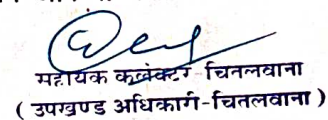 सहायक कलेक्टर-चितलवाना
( उपखण्ड अधिकारी-चितलवाना )